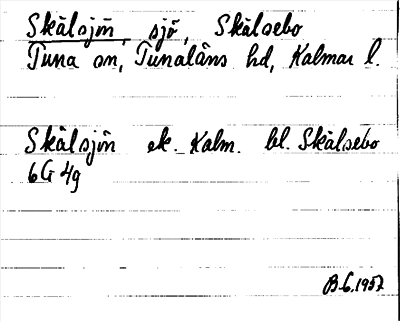 Skälsjön, sjö, Skälsebo
Tuna sn, Tunaläns hd, Kalmar l.
Skälsjön ek. Kalm. bl. Skälsebo
6G 4g
B.G. 1957